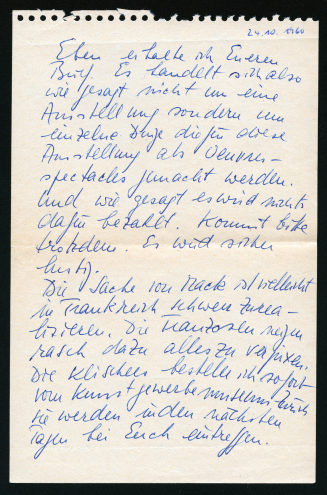 24.10.1960
Eben erhalte ich Eueren
Brief. Es handelt sich also
wie gesagt nicht um eine
Ausstellung sondern um
einzelne Dinge die für diese
Ausstellung als Oeuvre-
spectacles gemacht werden.
Und wie gesagt es wird nichts
dafür bezahlt. Kommt bitte
trotzdem. Es wird sicher
lustig.
Die Sache von Mack ist vielleicht
in Frankreich schwer zu rea-
lisieren. Die Franzosen neigen
rasch dazu alles zu
Die Klischees bestelle ich sofort
vom Kunstgewerbemuseum Zürich
sie werden in den nächsten
Tagen bei Euch eintreffen.